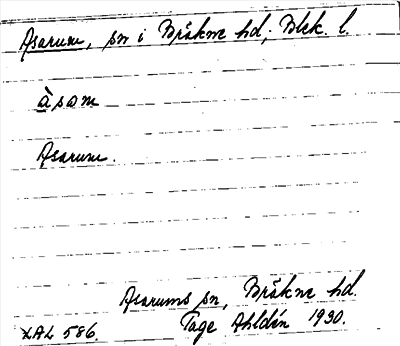 Asarum, sn i Bräkne hd; Blek. l.
àsam
Asarum.
Asarums sn, Bräkne hd.
LAL 586. Tage Ahldén 1930.